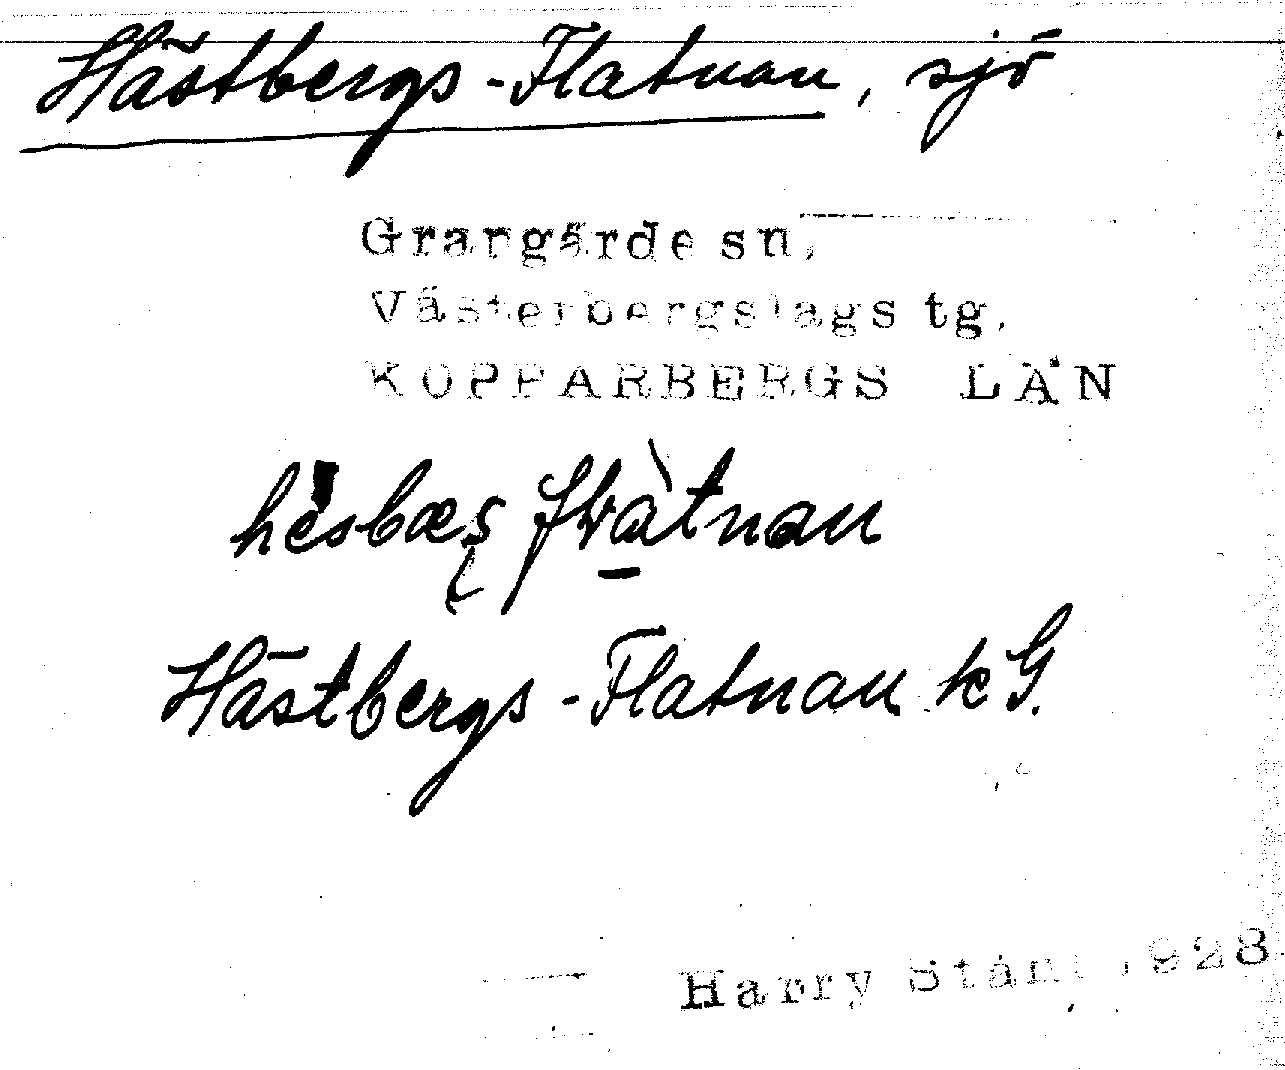 Hästbergs-Flatnan, sjö
Grangärde sn,
Västerbergslags tg.
KOPPARBERGS LÄN
Hästbergs-Flatnan kG.
Harry Ståhl 1928